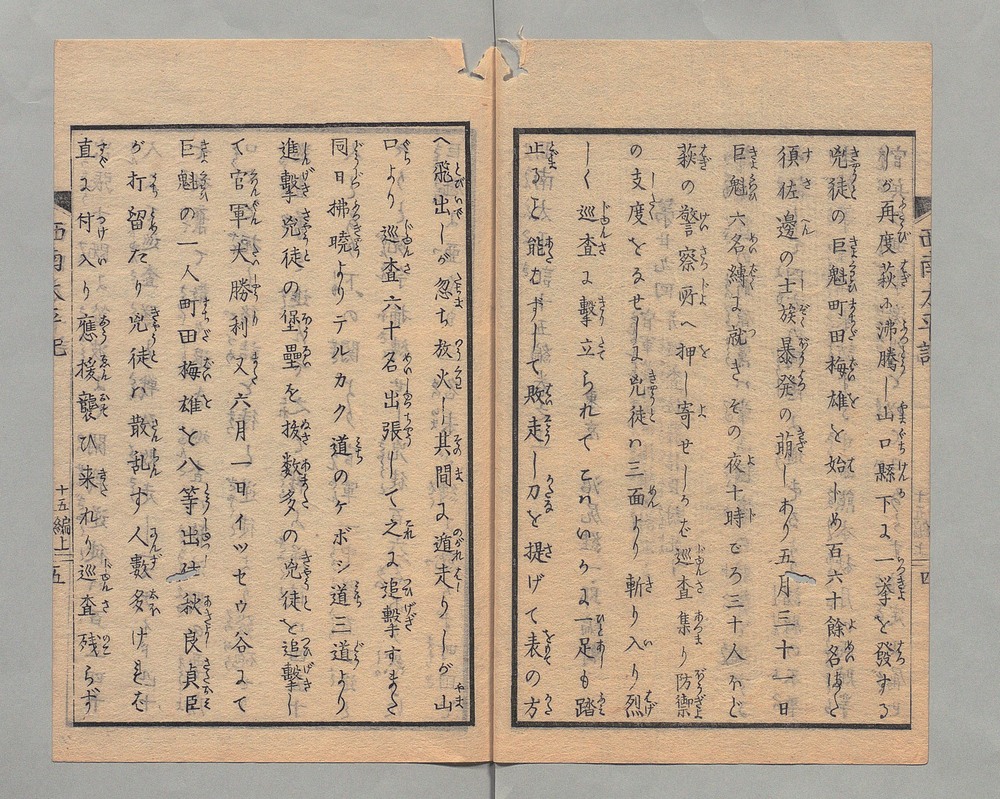 しが再度萩に沸騰し山口縣下に一挙を發する
兇徒の巨魁町田梅雄を始しめ百六十餘名ほど
須佐邊の士族暴発の萌しあり五月三十一日
巨魁六名縛に就きその夜十時ごろ三十人ほど
萩の警察所へ押し寄せしかば巡査集り防禦
の支度をなせしに兇徒ハ三面より斬り入り烈
しく巡査に撃立られてこれいかに一足も踏
止ると能わずして敗走し刀を提げて表の方
西南太平記
十五編上
四
へ飛出しが忽ち放火し其間に遁走りしが山
口より巡査六十名出張して之に追撃すまた
同日拂曉よりテルカク道のケボシ道三道より
進撃兇徒の堡壘を抜数多の兇徒を追撃し
て官軍大勝利又六月一日イツセウ谷にて
巨魁の一人町田梅雄を八等出仕秋良貞臣
が打留たり兇徒ハ散乱す人數多けれど
直に付入り應援襲ひ来れり巡査残らず
西南太平記
十五編上
五